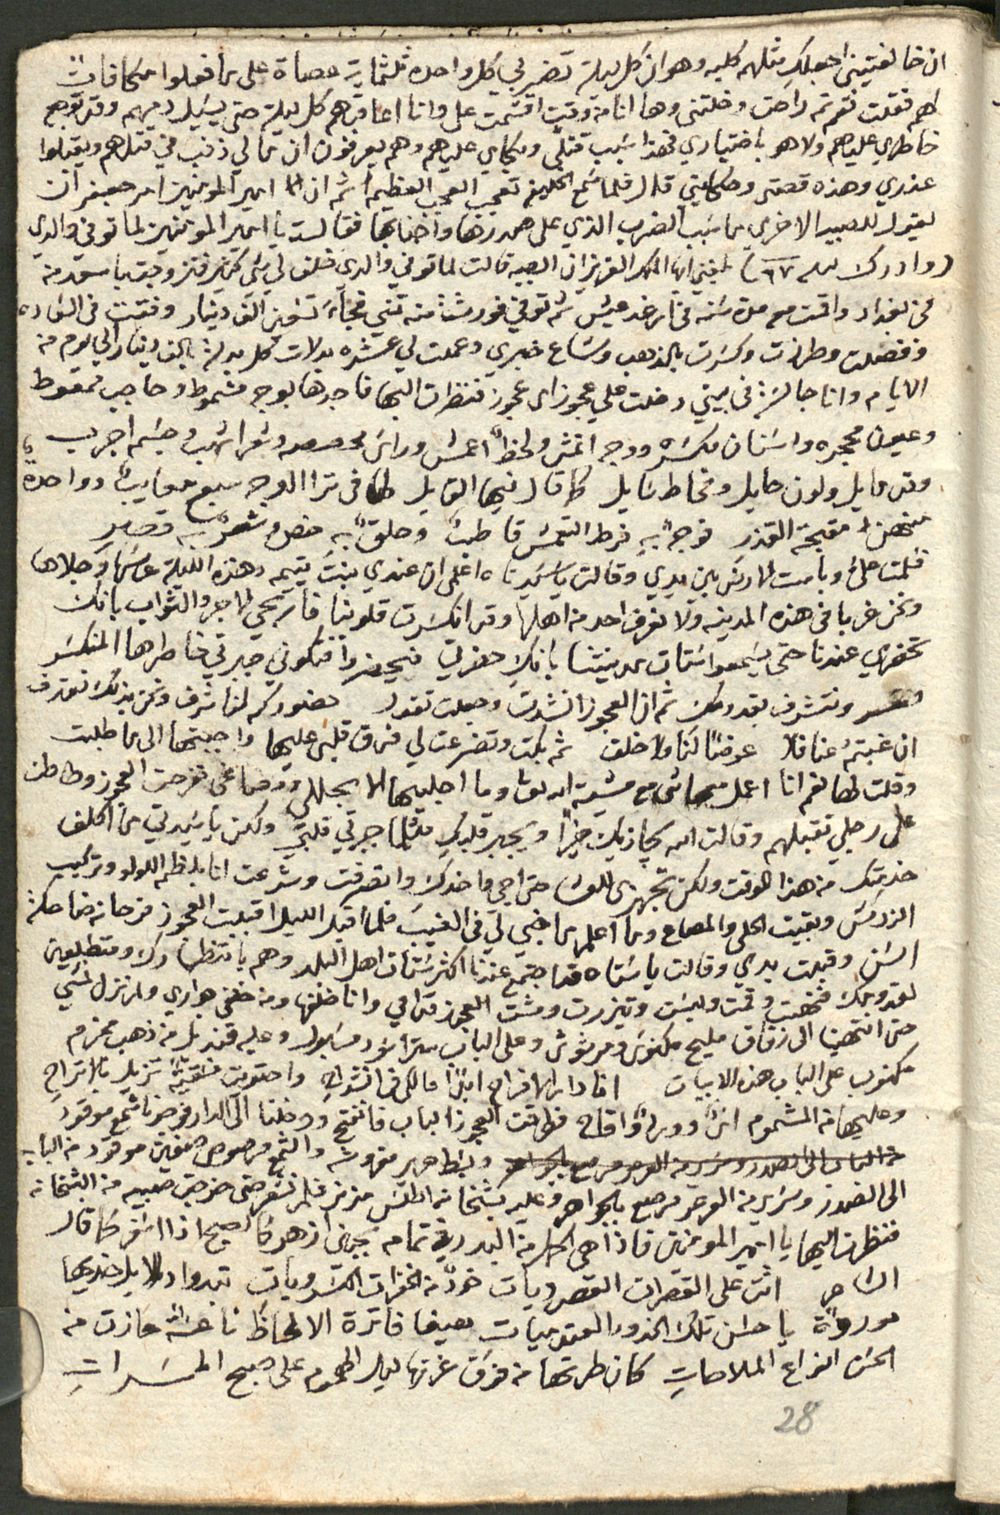 ان خالفتيني اجعلك مثلهم كلبه وهو ان كل ليلة تضربي كل واحده ثلثماية عصاة على ما فعلوا مكافات
لهم فقلت نعم ثم راحت وخلتني وها انا من وقت اقسمت علي وانا اعاقبهم كل ليلة حتى يسيل دمهم وقد توجع
خاطري عليهم ولا هو باختياري فهذا سبب قتلي وبكاي عليهم وهم يعرفون ان ما لي ذنب في قتلهم ويقبلوا
عذري وهذه قصتي وحكايتي قال فلما سمع الخليفه تعجب العجب العظيم ثم ان امير المومنين امر جعفر ان
يقول للصبيه الاخرى ما سبب الضرب الذي على صدرها واجنابها فقالت يا امير المومنين لما توفي والدي
(وادرك ليله ٦٧) بلغني ايها الملك العزيز ان الصبيه قالت لما توفي والدي خلف لي شي كثير فتزوجت باسعد من
في بغداد واقمت معه مدة سنه في ارغد عيش ثم توفي فورثت منه ثمني فجاء تسعين الف دينار وفقت في السعاده
وفصلت وطرزت وكثرت بالذهب وشاع خبري وعملت لي عشره بدلات كل بدلة بالف دينار الي يوم من
الايام وانا جالسة في بيتي دخلت علي عجوز اي عجوز فنظرت اليها فاجدها بوجه مشموط وحاجب ممعوط
وعيون مفجره واسنان مكسره ووجه انمش ولحظ اعمش وراس وشعر اشهب وجسم اجرب
وقد مايل ولون حايل ومخاط سايل كما قال فيها القايل لها في ترا الوجه سبع معايب وواحدة
منهن مقبحة القدر فوجه به فرط التعمس قاطب وحلق به وشعر به قصير
فسلمت علي وباست الارض بين يدي وقالت يا سيدتاه اعلمي ان عندي بنت يتيمه وهذه الليلة عرسها وجلاها
ونحن غربا في هذه المدينه ولا نعرف احد من اهلها وقد انكسرت قلوبنا فاربحي الاجر والثواب بانك
تحضري عندنا حتى يسمعوا ستات مدينتنا بانك حضرتي فيحضروا فتكوني جبرتي خاطرها المنكسر
ونتشرف بقدومك ثم ان العجوز انشدت وجعلت تقول حضوركم لنا شرف ونحن بذلك نعترف
ان غبتم عنا فلا عوضا لنا ولا خلف ثم بكت وتضرعت لي فرق قلبي عليها واجبتها الى ما طلبت
وقلت لها نعم انا اعمل معها شي مع مشية الله وما اجليها الا بحللي ومصاغي ففرحت العجوز وطاطت
على رجلي تقبلهم وقالت الله يجازيك خيرا ويجبر قلبك مثلما جبرتي قلبي ولكن يا سيدتي ما اكلف
خدمتك من هذا الوقت ولكن تجهزي للعشا حتى اجي فاخدك وانصرفت وشرعت انا بلظم اللولو وتركيب
الزركش وبقيت الحلي والمصاغ وما اعلم ما خبي لي في الغيب فلما اقبل الليل اقبلت العجوز فرحانه ضاحكة
السن وقبلت يدي وقالت يا ستاه قد اجتمع عندنا اكثر ستات اهل البلد وهم بانتظارك ومتطلعين
لقدومك فنهضت وقمت ولبست وتيزرت ومشت العجوز قدامي وانا خلفها ومن خلفي جواري ولم نزل نمشي
حتى انتهينا الى زقاق مليح مكنوس ومرشوش وعلى الباب ستر اسود مسبول وعليه قنديل من ذهب مخرم
مكتوب على الباب هذه الابيات انا دار الافراح ابدا مالكي في انشراح واحتويت فسقية تزيل للاتراح
وعليها من المشموم اس وورد واقاح فطرقت العجوز الباب فانفتح ودخلنا الى الدار فوجدنا شمع موقود
وبسط حرير مفروشه والشمع مرصوص صفين موقود من الباب
الى الصدور وسرير من العرعر مرصع بالجواهر وعليه بشخانه اطلس مزرر فلم نشعر حتى خرجت صبيه من البشخانه
فنظرت اليها يا امير المومنين فاذا هي اكمل من البدر في تمامه بجبين ازهر كالصبح اذا اسفر كما قال
الشاعر اتت على القصرات القصرويات خود من الخفرات الكسرويات تبدوا دلايل خديها
موردة يا حسن تلك الخدود العندميات هيفا فاترة الالحاظ ناعسة حازت من
الحسن انواع الملاحات كان طرتها من فوق غرتها ليل الهموم على صبح المسرات
28